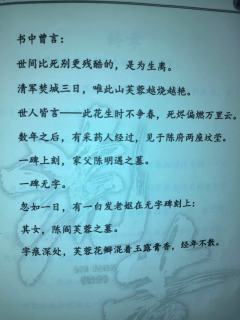 书中曾言：
世间比死别更残酷的，是为生离。
清军焚城三日，唯此山芙蓉越烧越艳。
世人皆言——此花生时不争春，死烬偏燃万里云。
数年之后，有采药人经过，见于陈府两座坟茔。
一碑上刻，家父陈明遇之墓。
一碑无字。
忽如一日，有一白发老妪在无字碑刻上：
其女，陈阎芙蓉之墓。
字痕深处，芙蓉花瓣混着玉露膏香，经年不散。